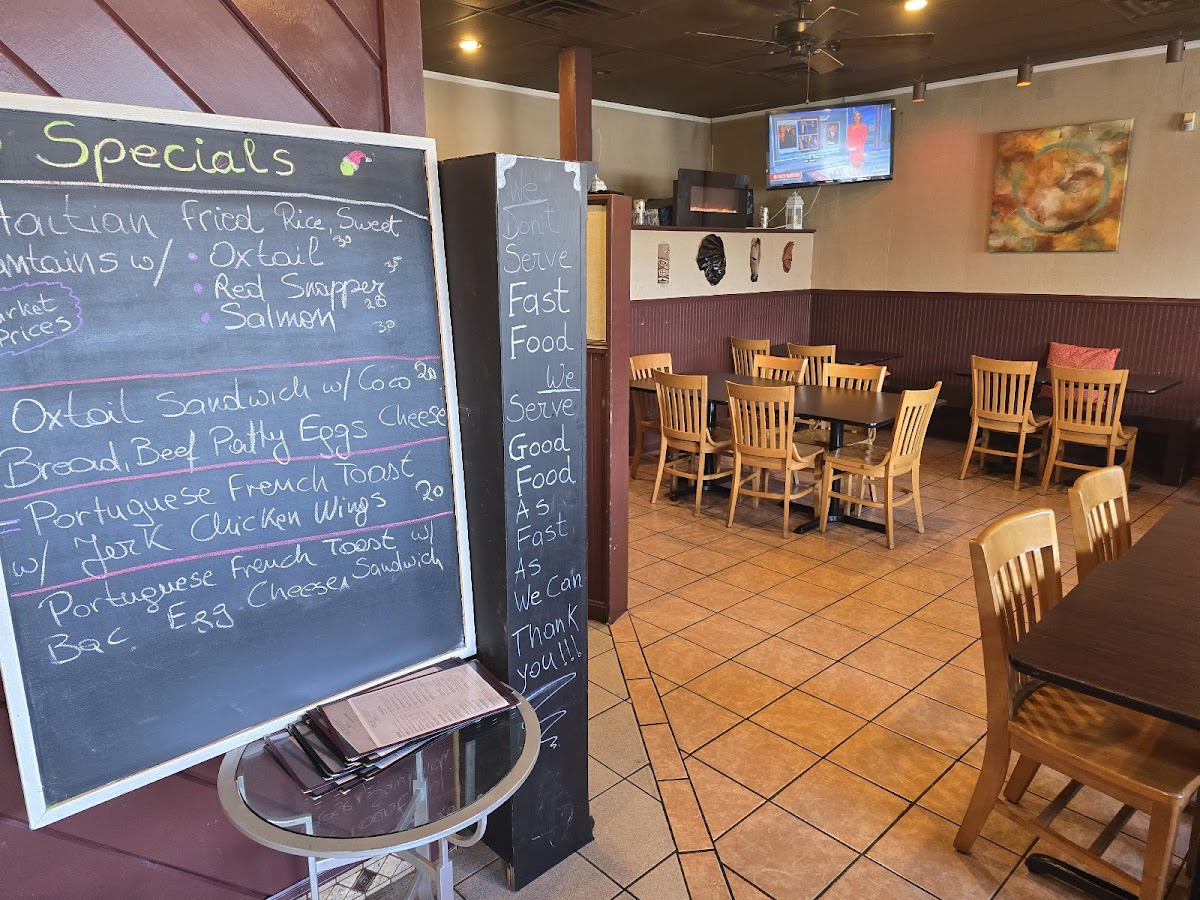 Specials
Haitian Fried Rice, Sweet
antains w/ • Oxtail 30
• Red Snapper 35
arket
Prices
• Salmon 28
30
Oxtail Sandwich w/ Coco 20
Bread, Beef Patty Eggs Cheese
Portuguese French Toast
w/ Jerk Chicken Wings 20
Portuguese French Toast w/
Bac. Egg Cheese Sandwich
We
Don't
Serve
Fast
Food
We
Serve
Good
Food
As
Fast
As
We Can
Thank
you!!!